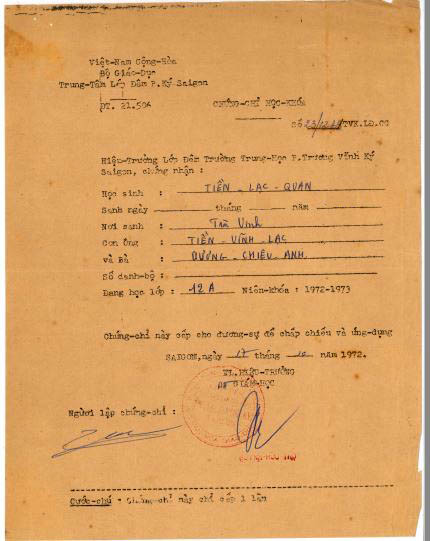 Việt-Nam Cộng-Hòa
Bộ Giáo-Dục
Trung-Tâm Lớp Đêm P.Ký Saigon
ĐT. 21.504
CHỨNG-CHỈ HỌC-KHÓA
Số /TVK.LĐ.CC
Hiệu-Trưởng Lớp Đêm Trường Trung-Học P.Trương Vĩnh Ký
Saigon, chứng nhận :
Học sinh : TIỀN - LẠC - QUẦN
Sanh ngày tháng năm
Nơi sanh : Trà Vinh
Con Ông : TIỀN - VĨNH - LẠC
và Bà : DƯƠNG - CHIÊU - ANH.
Số danh-bộ :
Đang học lớp : 12A Niên-khóa : 1972-1973
Chứng-chỉ này cấp cho đương-sự để chấp chiếu và ứng-dụng
SAIGON, ngày 17 tháng 10 năm 1972.
TL.HIỆU-TRƯỞNG
GIÁM-HỌC
Người lập chứng-chỉ :
Cước-chú - Chứng-chỉ này chỉ cấp 1 lần